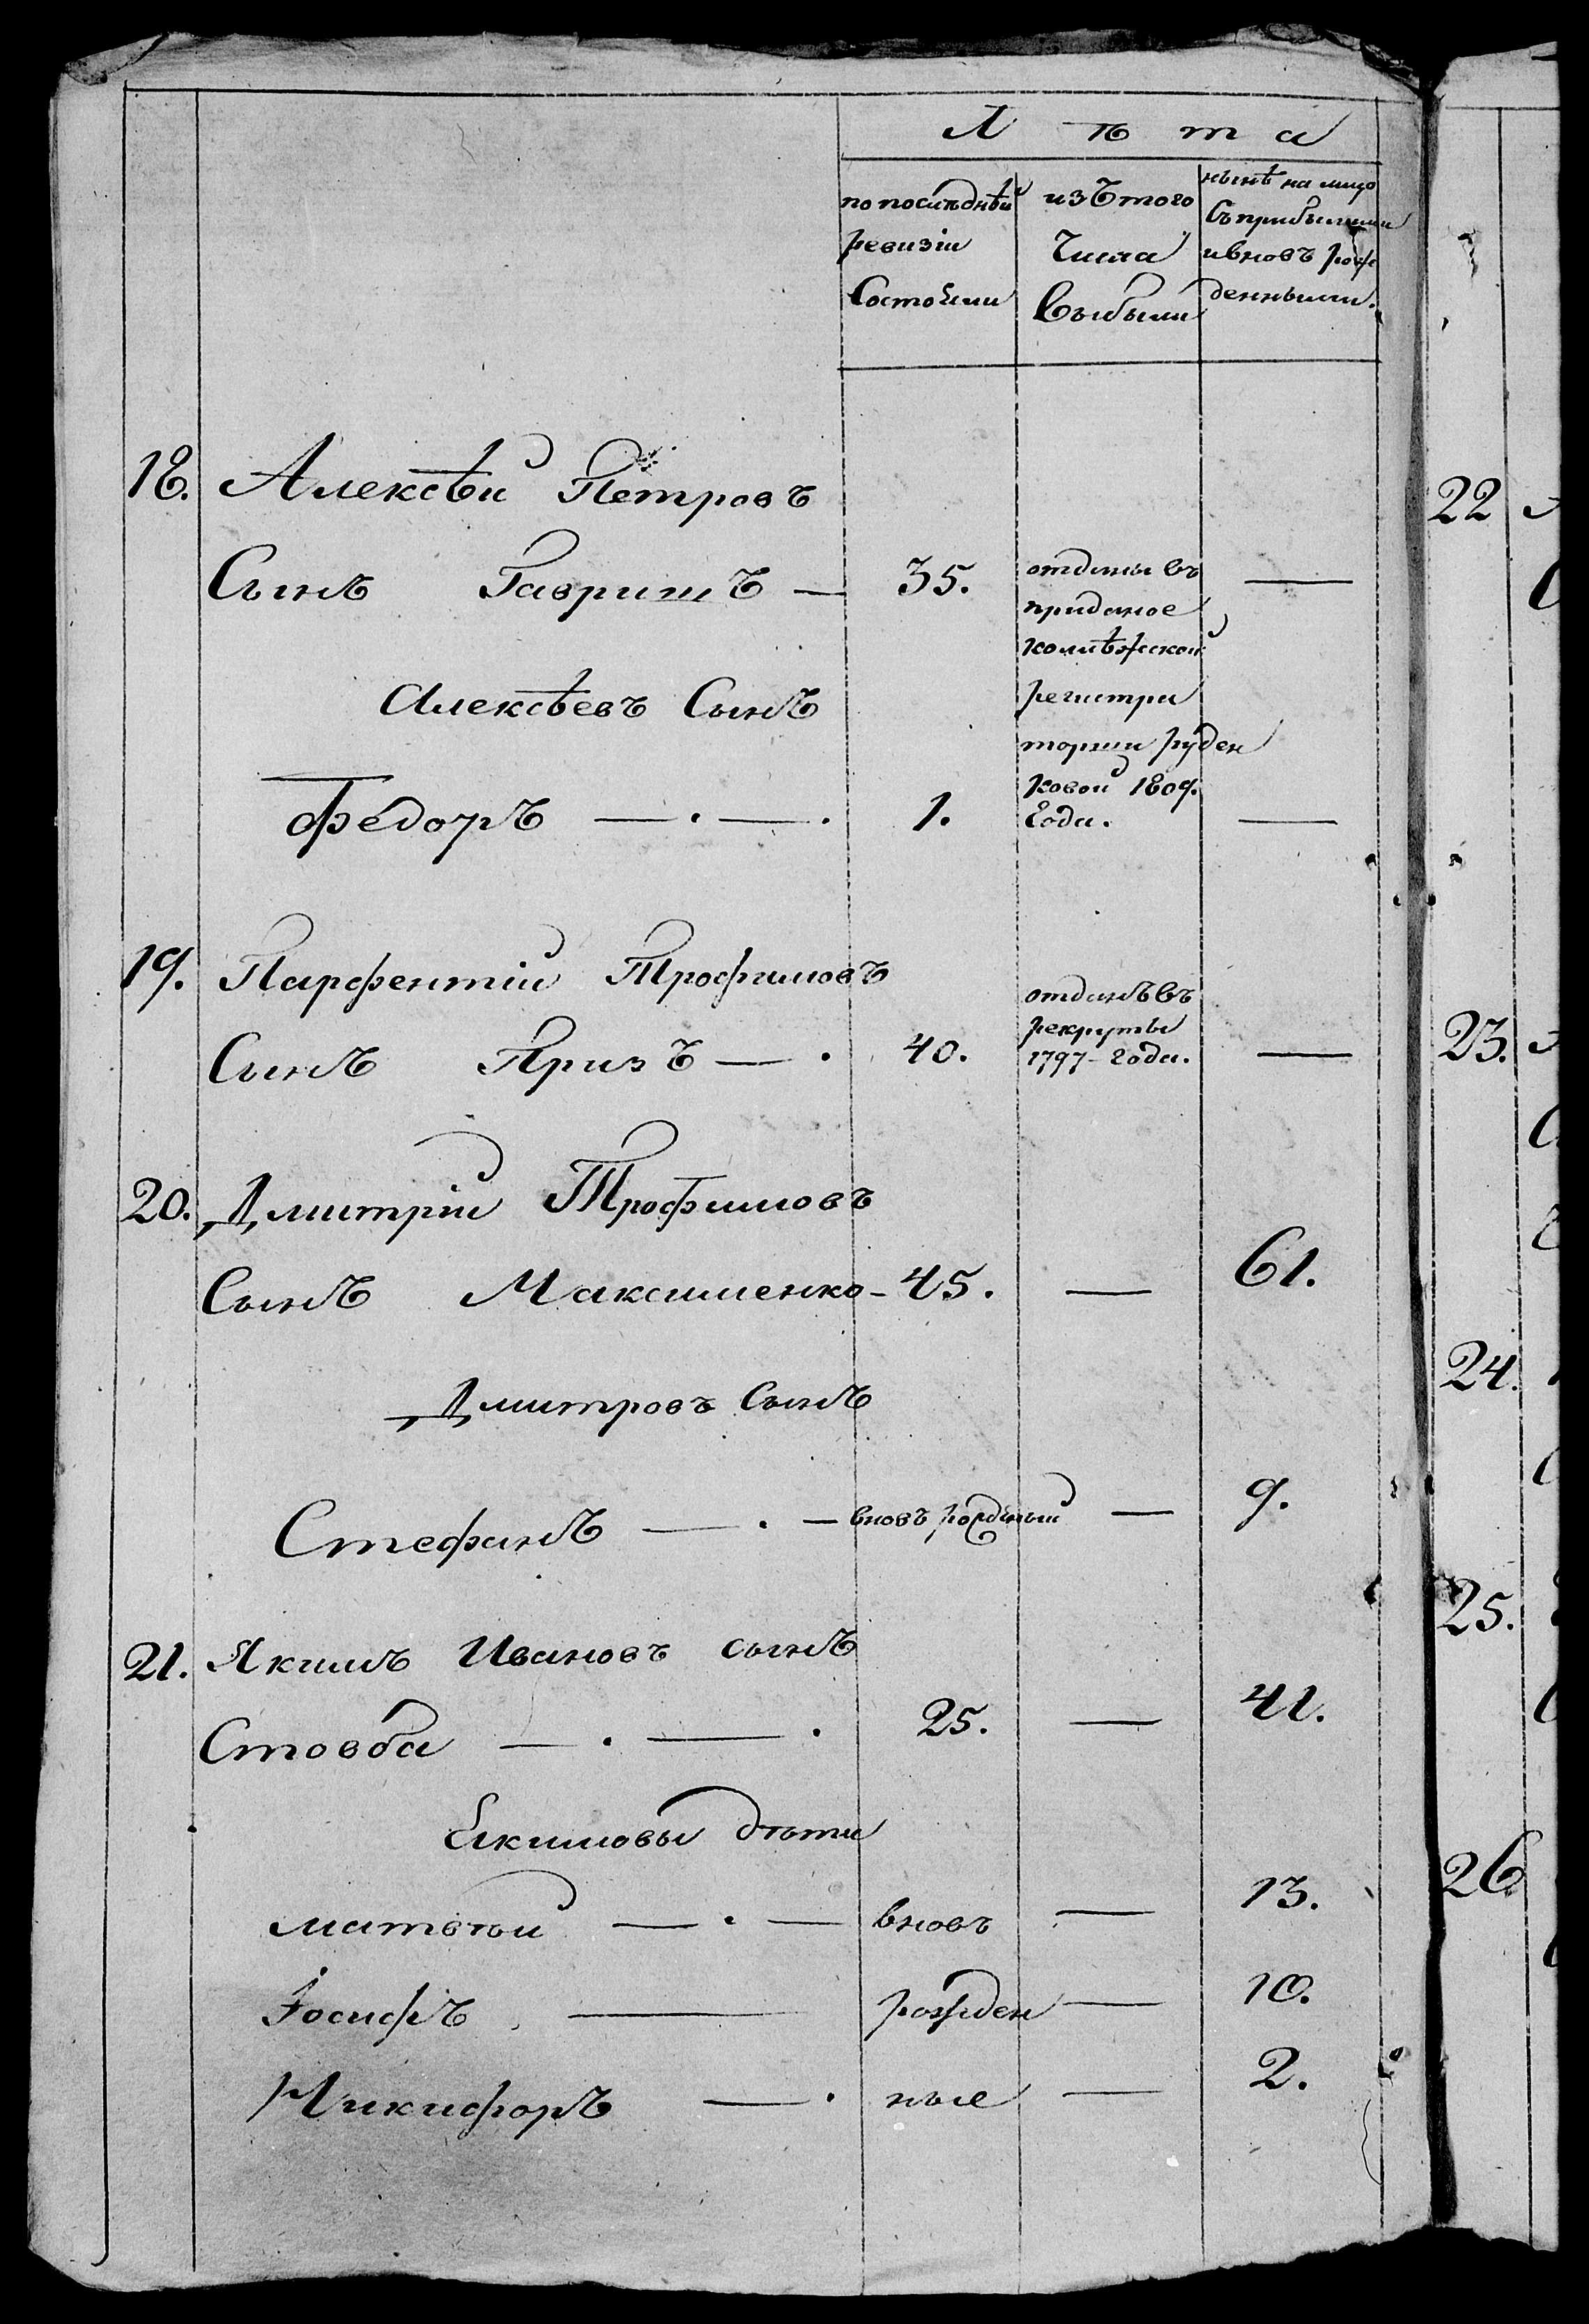 Лѣта
по послѣднѣй
ревизіи
Состояли
изъ того
Числа
Выбыли
нынѣ на лицо
Съ прибылыми
и вновь рож
денными.
18. Алексѣй Петровъ
Сынъ Гавришъ — 35. —
отданы въ
приданое
колѣжской
регистра
торши Руден
ковой 1809.
Года.
Алексѣевъ Сынъ
Федоръ — . — . 1. —
19. Парфентій Трофимовъ
Сынъ Призъ — . 40. —
отданъ въ
рекруты
1797 – Года.
20. Дмитрій Трофимовъ
Сынъ Максименко – 45. — 61.
Дмитровъ Сынъ
Стефанъ — . — вновь рожденый — 9.
21. Якимъ Ивановъ сынъ
Стовба — . — . 25. — 41.
Екимовы дѣти
Матвѣй — . — вновь — 13.
Іосифъ — рожден — 10.
Никифоръ — . ные — 2.
22
23.
24.
25.
26